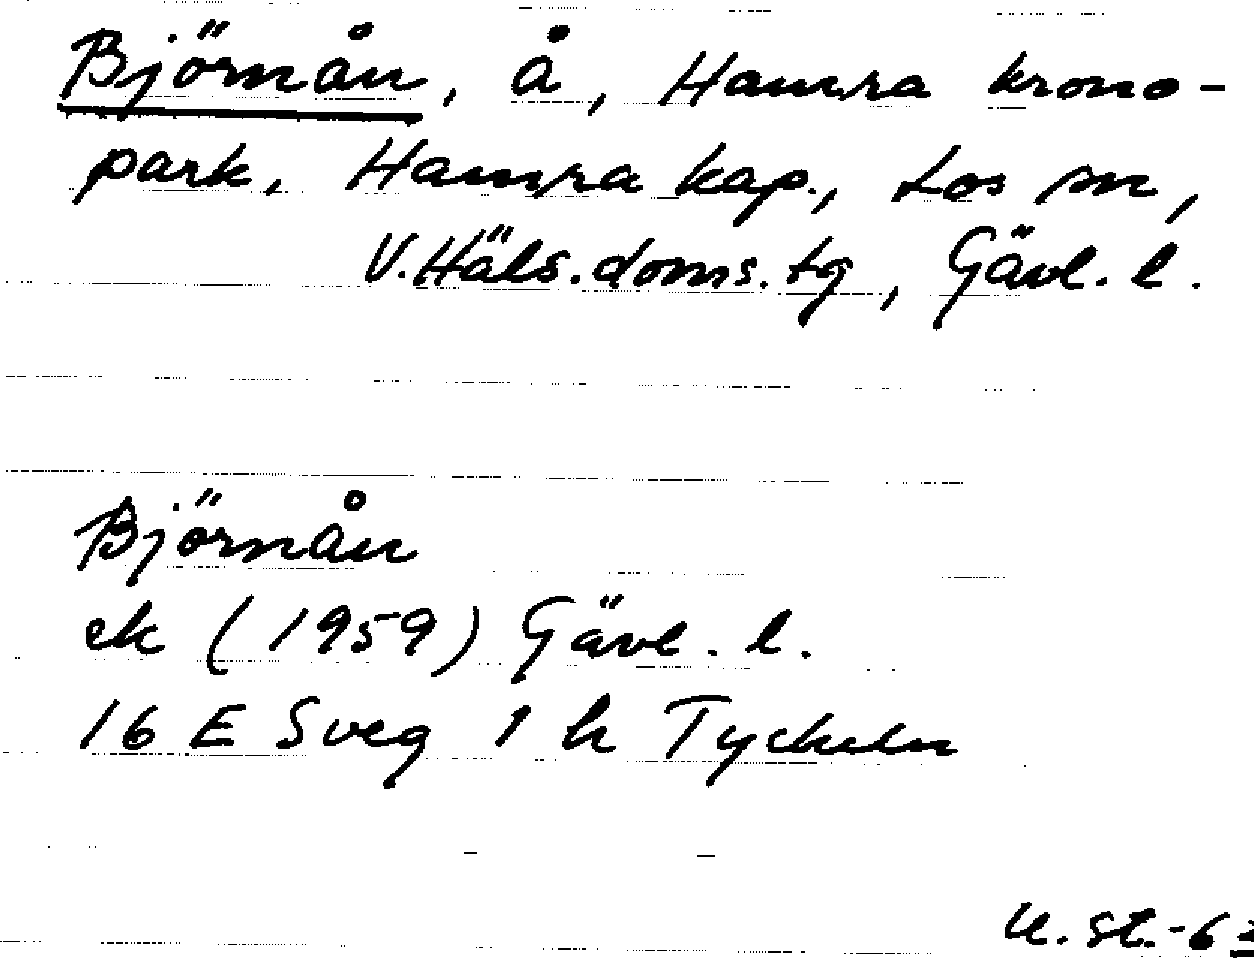 Björnån, å, Hamra krono-
park, Hamra kap., Los sn,
V. Häls. doms. tg, Gävl. l.
Björnån
ek (1959) Gävl. l.
16 E Sveg 1 h Tyckeln
U. St.-63